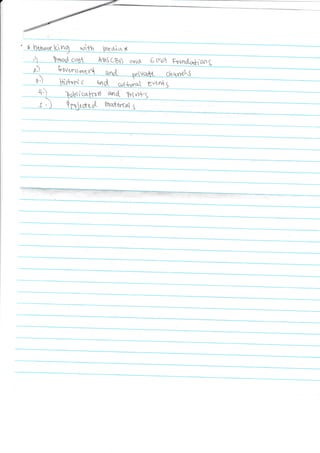 * Networking with Medias
1) Broad cast ABSCBN and GMA7 Foundations
2) Government and private chanels
3.) Historic and cultural Events
4.) Publication and Prints
5.) Projected Materials